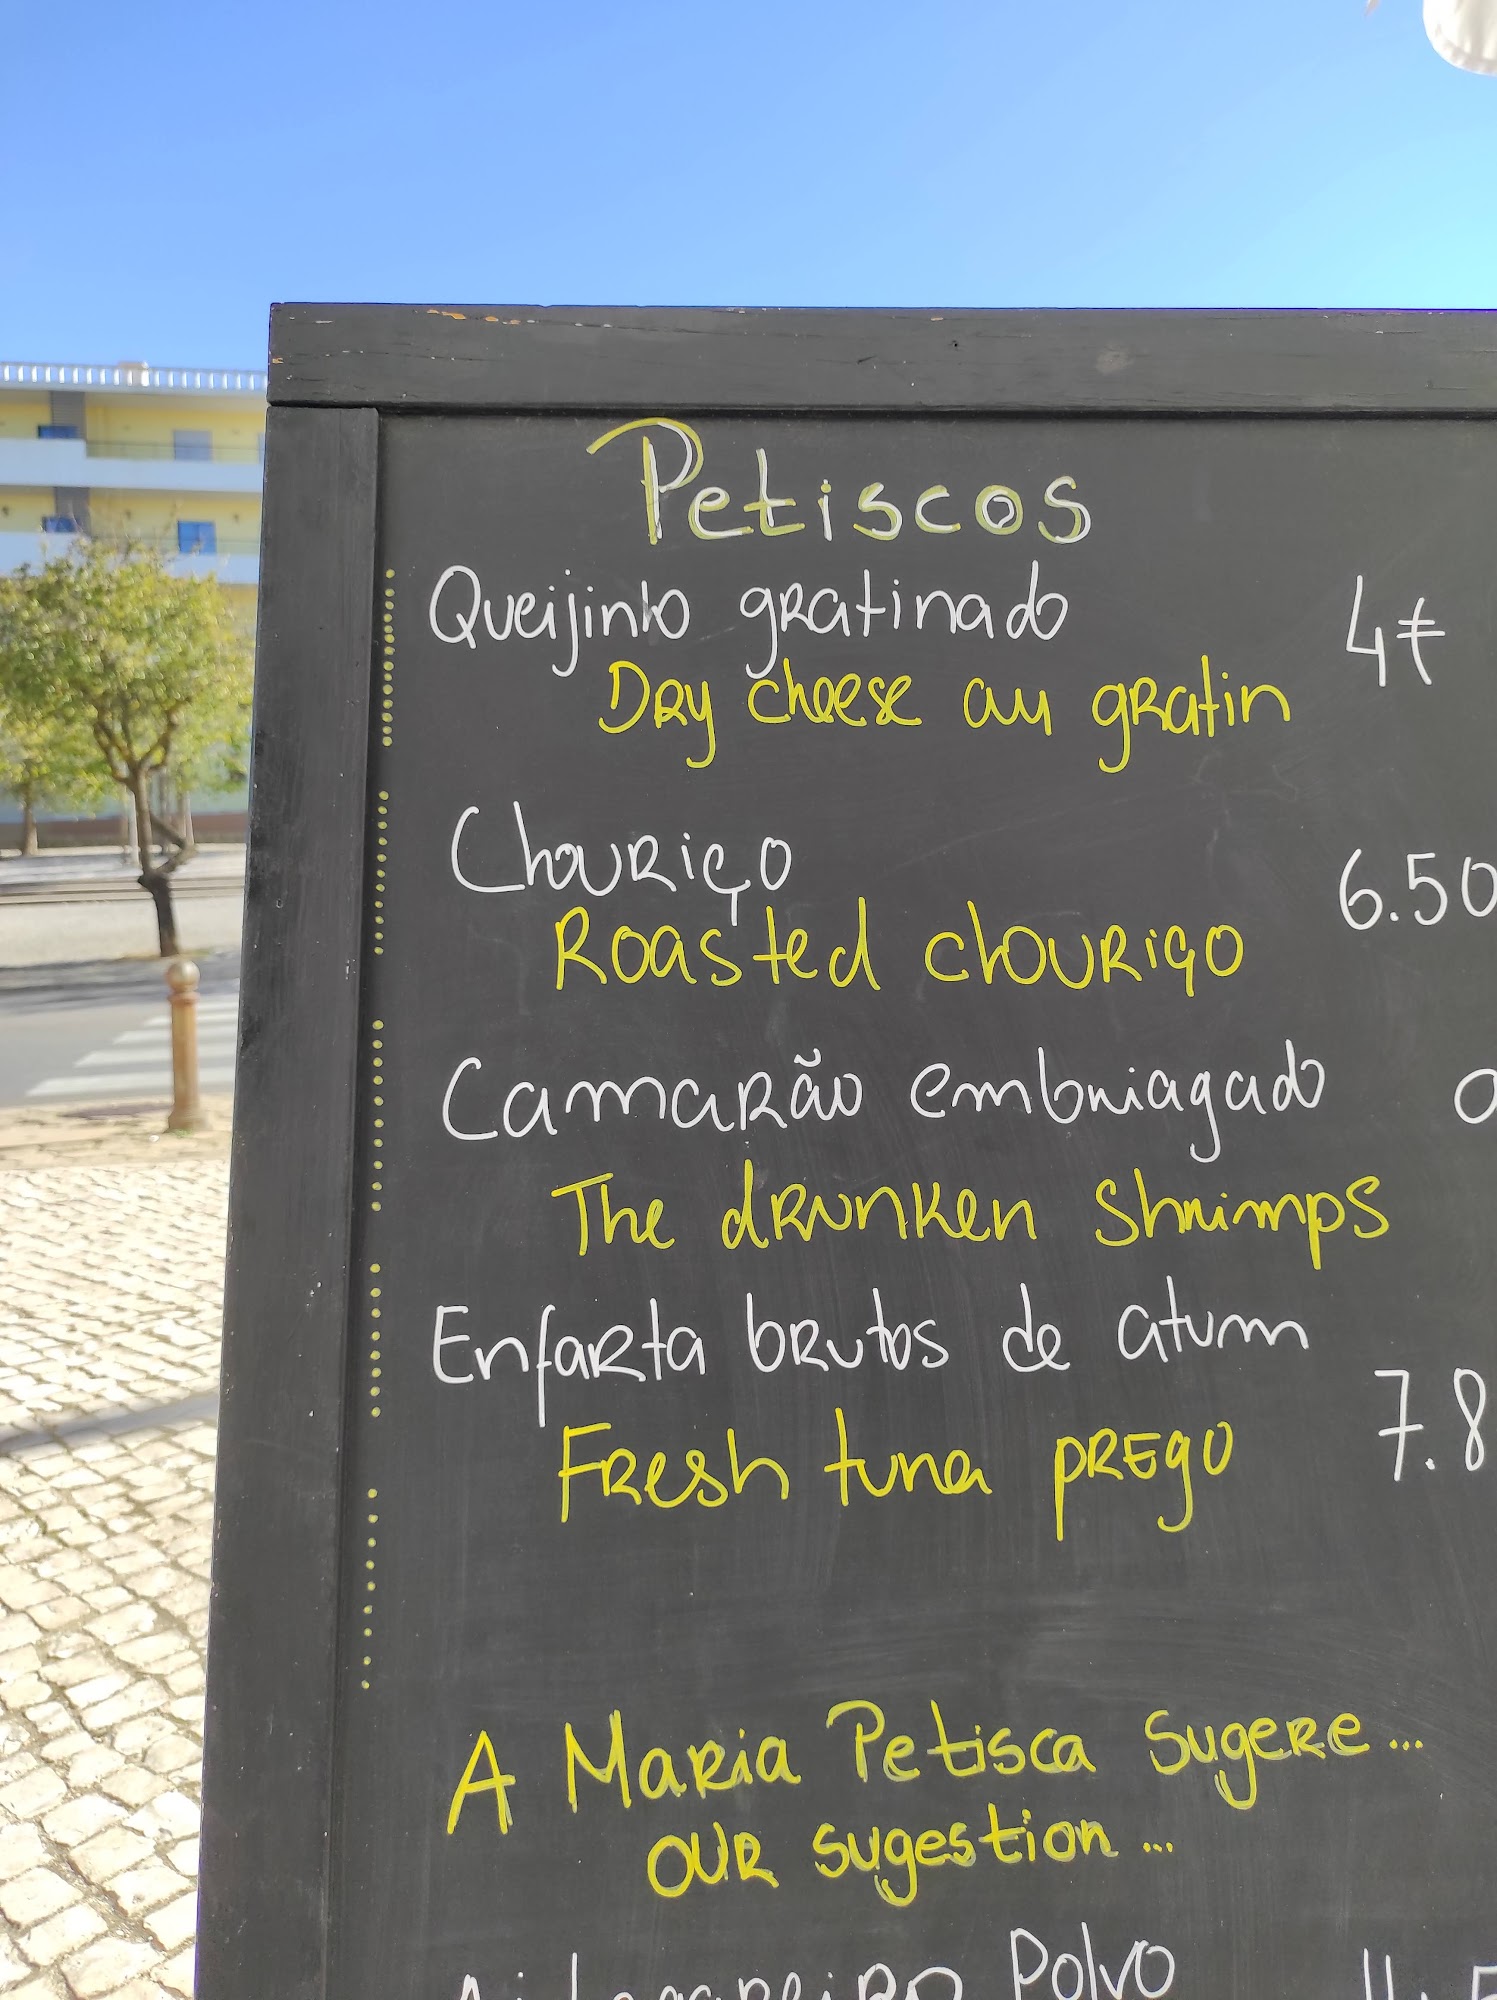 Petiscos
Queijinho gratinado 4€
Dry cheese au gratin
Chouriço 6.50
Roasted chouriço
Camarão embriagado
The drunken shrimps
Enfarta brutos de atum
7.8
Fresh tuna prego
A Maria Petisca Sugere...
our sugestion...
Polvo